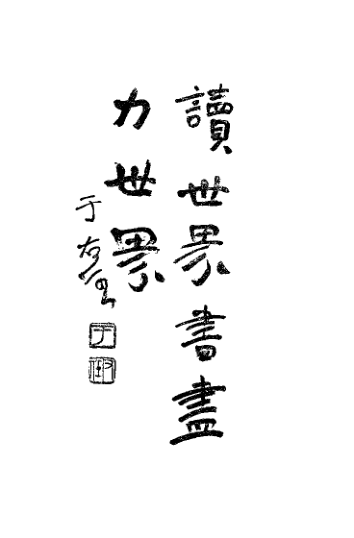 讀世界書盡
力世界
于右任
于